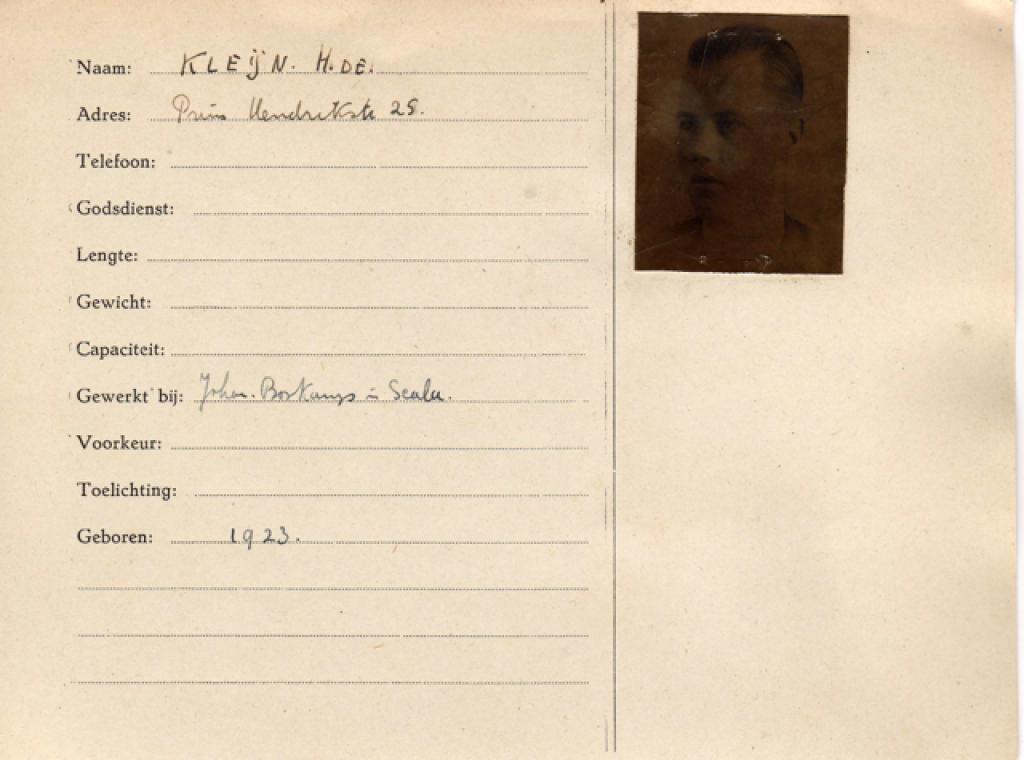 Naam: KLEIJN. H. DE.
Adres: Prins Hendrikstr 25.
Telefoon:
Godsdienst:
Lengte:
Gewicht:
Capaciteit:
Gewerkt bij: Johan. Boskamps in Scala.
Voorkeur:
Toelichting:
Geboren: 1923.